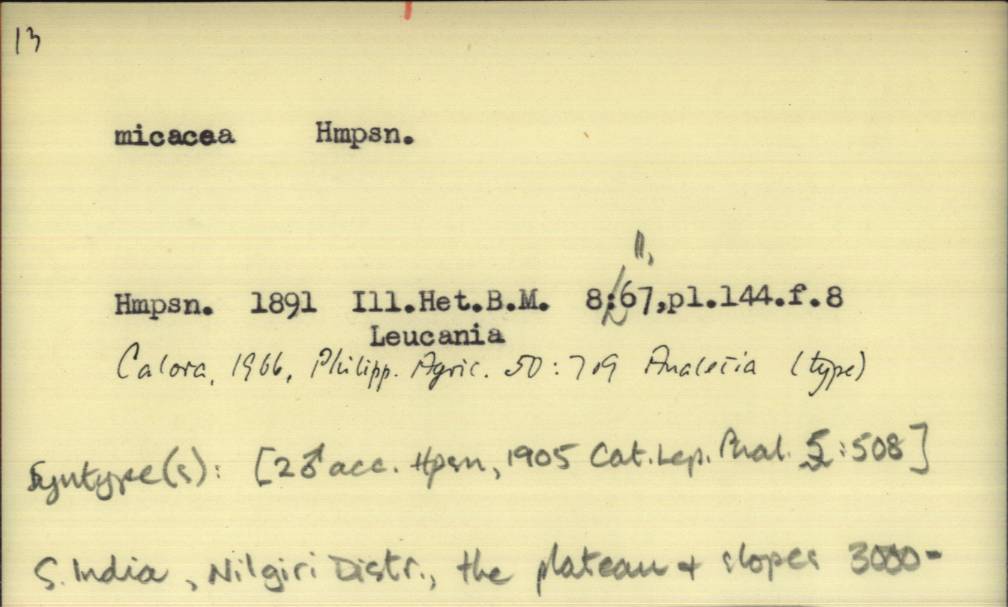 13
micacea Hmpsn.
11,
Hmpsn. 1891 Ill.Het.B.M. 8:67,pl.144.f.8
Leucania
Calora, 1966, Philipp. Agric. 50:719 Analetia (type)
Syntype(s): [2♂ acc. Hpsn, 1905 Cat.Lep.Phal. 5:508]
S. India, Nilgiri Distr., the plateau & slopes 3000-